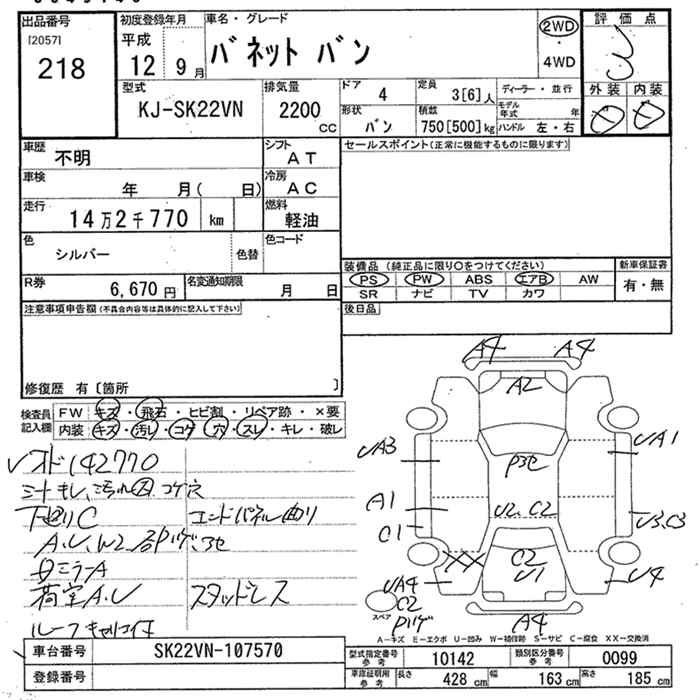 出品番号
[2057]
218
初度登録年月
平成
12 9月
車名・グレード
バネット バン
2WD
・
4WD
評価点
3
外装 内装
型式
KJ-SK22VN
排気量
2200
CC
ドア
4
定員
3[6]人
ディーラー・並行
形状
バン
積載
750[500]kg
モデル年式 年
ハンドル 左・右
車歴
不明
シフト
AT
セールスポイント(正常に機能するものに限ります)
車検
年 月( 日)
冷房
AC
走行
14万2千770 km
燃料
軽油
色
シルバー
色替
色コード
装備品 (純正品に限り○をつけてください)
新車保証書
PS PW ABS エアB AW
有・無
SR ナビ TV カワ
R券
6,670円
名変通知期限
月 日
後日品
注意事項申告欄(不具合内容等は具体的に記入して下さい)
修復歴 有〔箇所 〕
検査員
記入欄
FW キズ・飛石・ヒビ割・リペア跡・×要
内装 キズ・汚レ・コゲ・穴・スレ・キレ・破レ
メオド142770
シートキレ、汚れ大 コゲ穴
下廻りC エンドパネル曲り
A.U、W2
左ミラーA
荷室A.U スタッドレス
A4 A4
A2
UA3
UA1
P3セ
A1
C1
U2、C2
U3、C3
XX
C2
U1
UA4
C2
U4
スペア
A4
A－キズ E－エクボ U－凹み W－補修跡 S－サビ C－腐食 XX－交換済
車台番号
SK22VN-107570
登録番号
型式指定番号
参考
10142
類別区分番号
参考
0099
車庫証明用
参考
長さ 428 cm 幅 163 cm 高さ 185 cm